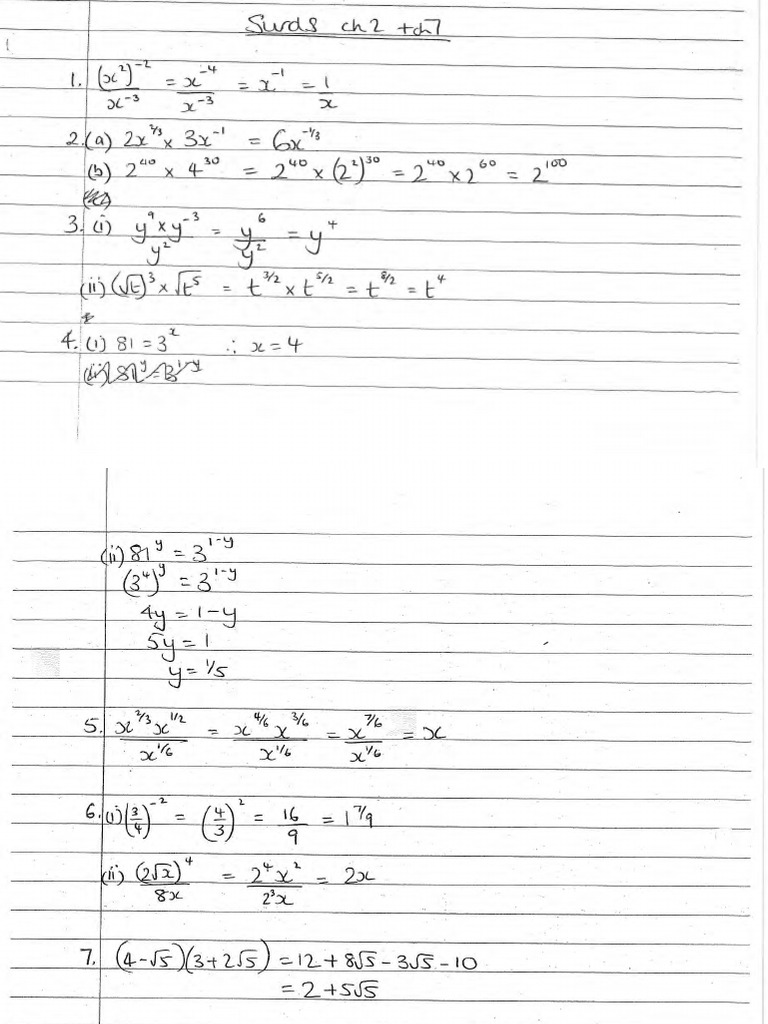 Surds ch2 + ch7
1. (x²)⁻²/x⁻³ = x⁻⁴/x⁻³ = x⁻¹ = 1/x
2. (a) 2x^(2/3) × 3x⁻¹ = 6x^(-1/3)
(b) 2⁴⁰ × 4³⁰ = 2⁴⁰ × (2²)³⁰ = 2⁴⁰ × 2⁶⁰ = 2¹⁰⁰
3. (i) y⁹ × y⁻³/y² = y⁶/y² = y⁴
(ii) (√t)³ × √t⁵ = t^(3/2) × t^(5/2) = t^(8/2) = t⁴
4. (i) 81 = 3ˣ ∴ x = 4
(ii) 81^y = 3^(1-y)
(ii) 81^y = 3^(1-y)
(3⁴)^y = 3^(1-y)
4y = 1 - y
5y = 1
y = 1/5
5. x^(2/3) x^(1/2)/x^(1/6) = x^(4/6) x^(3/6)/x^(1/6) = x^(7/6)/x^(1/6) = x
6. (i) (3/4)⁻² = (4/3)² = 16/9 = 1 7/9
(ii) (2√x)⁴/8x = 2⁴x²/2³x = 2x
7. (4-√5)(3+2√5) = 12 + 8√5 - 3√5 - 10
= 2 + 5√5